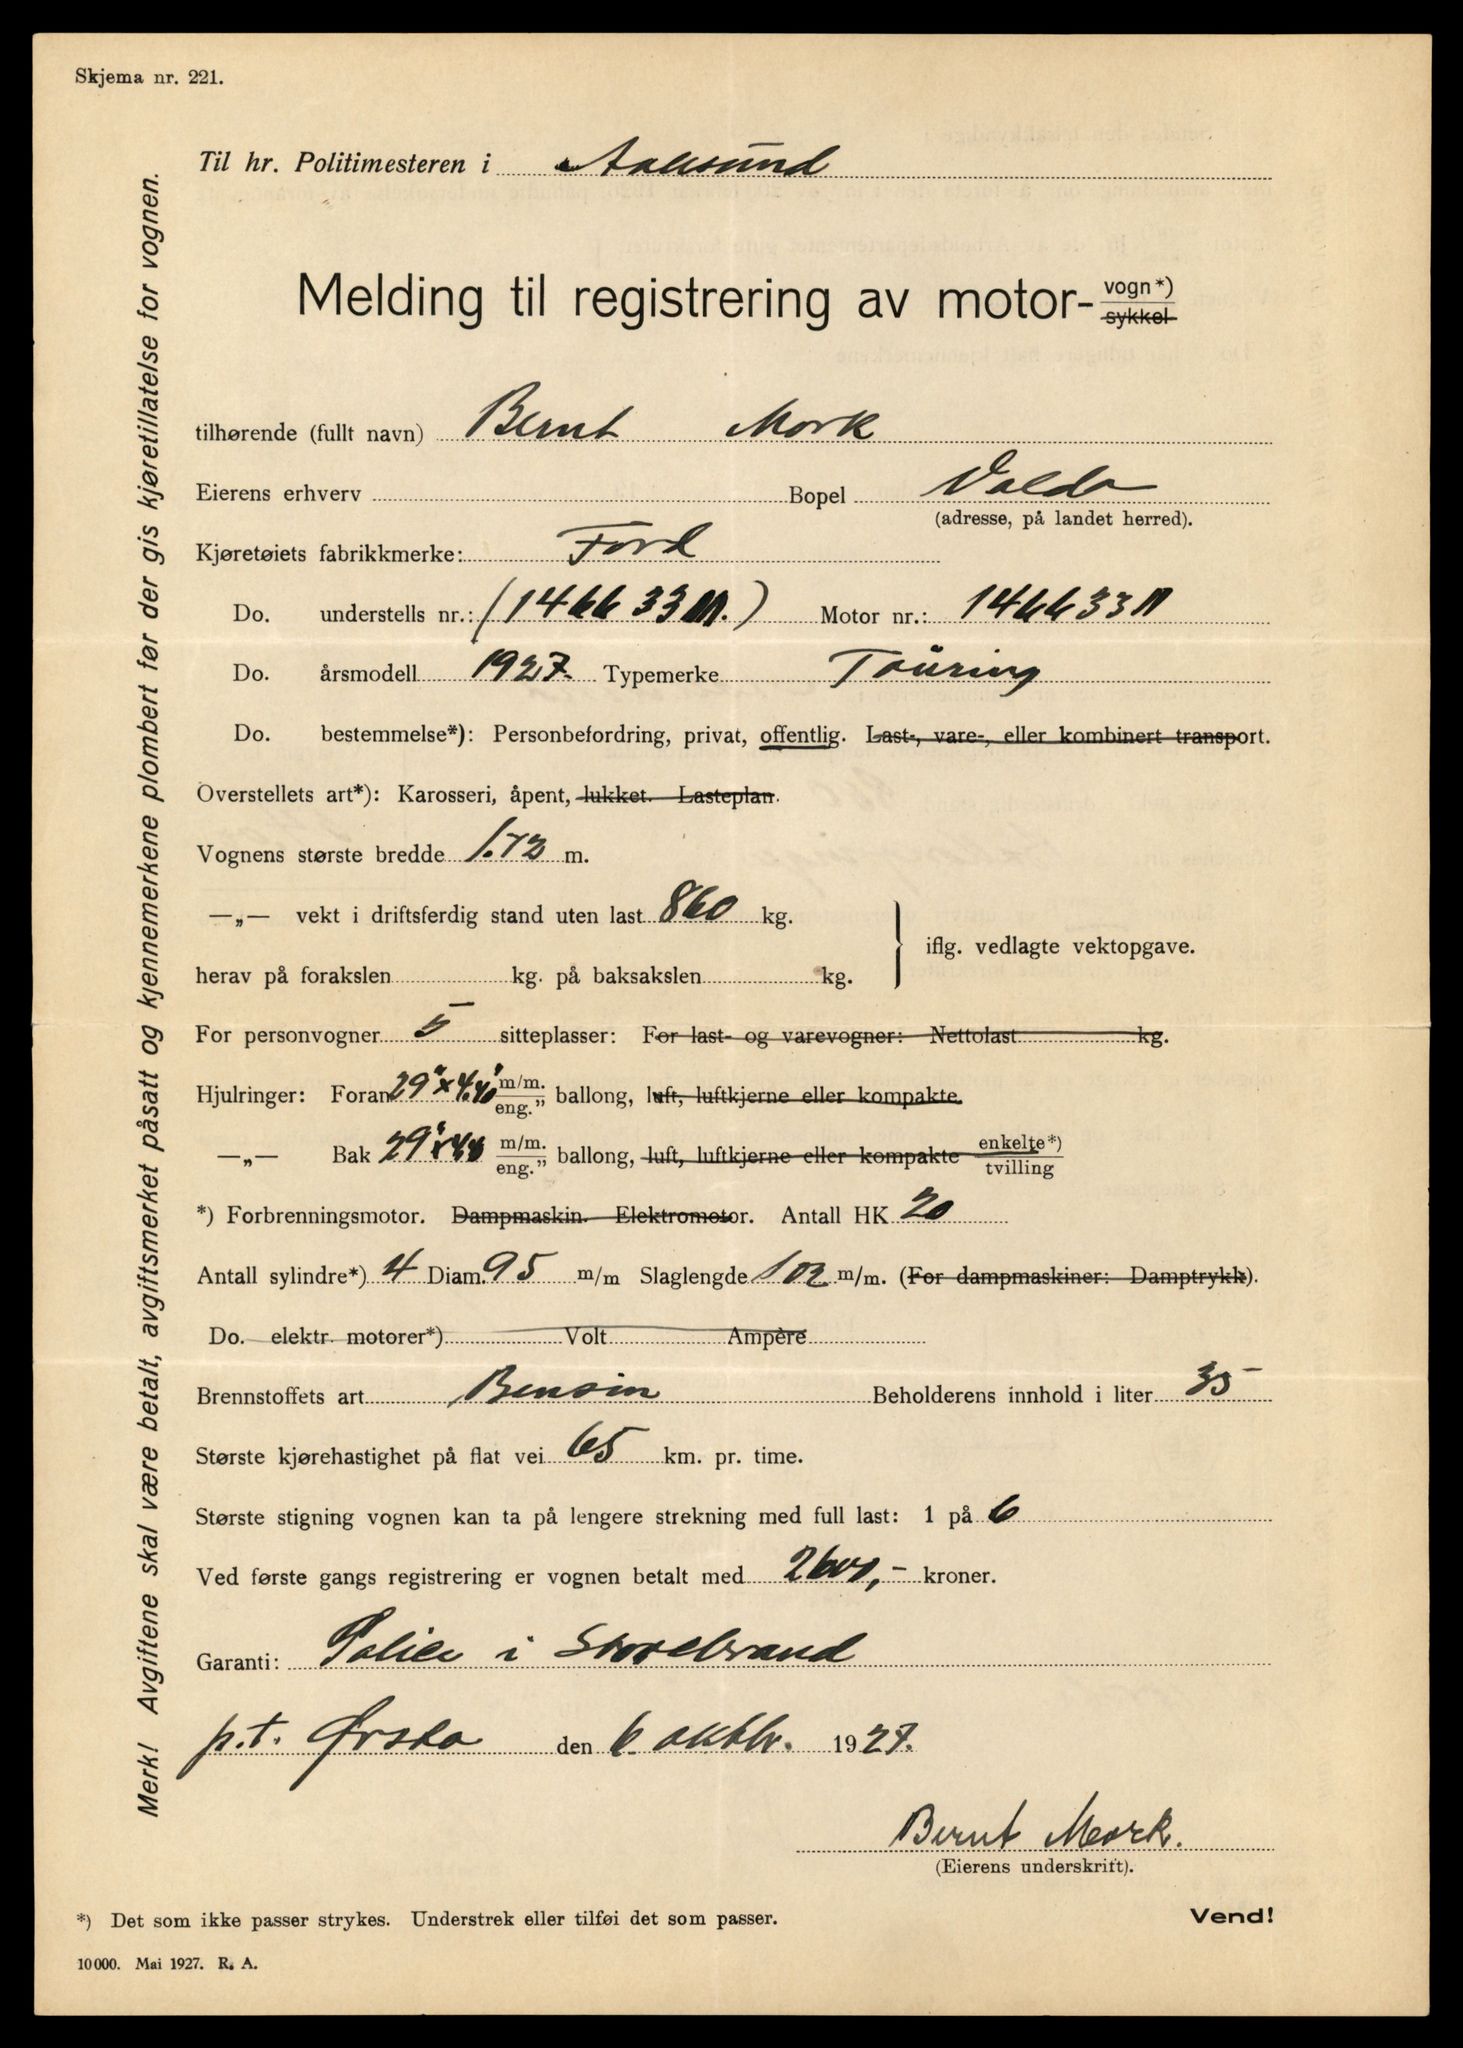 Skjema nr. 221.
Til hr. Politimesteren i Aalesund
Melding til registrering av motor-vogn*)
sykkel
tilhørende (fullt navn) Bernt Mork
Eierens erhverv Bopel Volda
(adresse, på landet herred).
Kjøretøiets fabrikkmerke: Ford
Do. understells nr.: (146633M.) Motor nr.: 146633M
Do. årsmodell 1927. Typemerke Touring
Do. bestemmelse*): Personbefordring, privat, offentlig. Last-, vare-, eller kombinert transport.
Overstellets art*): Karosseri, åpent, lukket. Lasteplan.
Vognens største bredde 1.72 m.
—„— vekt i driftsferdig stand uten last 860 kg.
iflg. vedlagte vektopgave.
herav på forakslen kg. på baksakslen kg.
For personvogner 5 sitteplasser: For last- og varevogner: Nettolast kg.
Hjulringer: Foran 29"x4.40" m/m. eng.” ballong, luft, luftkjerne eller kompakte.
—„— Bak 29"x4.40 m/m. eng.” ballong, luft, luftkjerne eller kompakte enkelte*) tvilling
*) Forbrenningsmotor. Dampmaskin. Elektromotor. Antall HK 20
Antall sylindre*) 4 Diam. 95 m/m Slaglengde 102 m/m. (For dampmaskiner: Damptrykk).
Do. elektr. motorer*) Volt Ampère
Brennstoffets art Bensin Beholderens innhold i liter 35
Største kjørehastighet på flat vei 65 km. pr. time.
Største stigning vognen kan ta på lengere strekning med full last: 1 på 6
Ved første gangs registrering er vognen betalt med 2600,- kroner.
Garanti: Police i Storebrand
p.t. Ørsta den 6 oktbr. 1927.
Bernt Mork.
(Eierens underskrift).
*) Det som ikke passer strykes. Understrek eller tilføi det som passer.
Vend!
10000. Mai 1927. R. A.
Merk! Avgiftene skal være betalt, avgiftsmerket påsatt og kjennemerkene plombert før der gis kjøretillatelse for vognen.